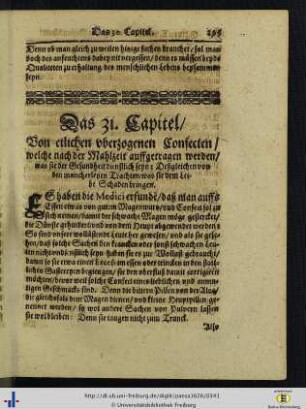 Das 30. Capitel. 295
Denn ob man gleich zu zeiten hitzige sachen brauchet / sol man
doch des anfeuchtens dabey nit vergessen / denn es müssen beyde
Qualiteten zu erhaltung des menschlichen lebens beysammen
seyn.
Das 31. Capitel /
Von etlichen vberzogenen Confecten /
welche nach der Mahlzeit auffgetragen werden /
was sie der Gesundheit dienstlich seyn: Desgleichen von
den mancherleyen Trachten was sie dem Lei-
be Schaden bringen.
ES haben die Medici erfunden / daß man auffs
Essen etwas von guten Magenwurtz und Confect sol zu
sich nemen / damit der schwache Magen möge gestercket /
die Dünste gehindert und von dem Haupt abgewendet werden:
So sind unser wollüstigen Leute her gewesen / und als sie gese-
hen / daß solche Sachen den krancken oder sonst schwachen Leu-
ten nichts undienstlich seyn haben sie es zur Wollust gebraucht /
damit sie erwa einer Essens oder Trinckens oder in den köstli-
chen Gastereyen begiengen / sie den überfluß damit corrigieren
möchten / bevor weil solche Confect eines lieblichen und anmu-
tigen Geschmacks sind. Denn die bittern Pillen von der Aloe /
die gleichsfals dem Magen dienen / und kleine Hauptpillen ge-
nennet werden / so wol andere Sachen von Pulvern lassen
sie wol bleiben: Denn sie taugen nicht zum Trunck.
Also
http://dl.ub.uni-freiburg.de/diglit/paraa1676/0341
© Universitätsbibliothek Freiburg